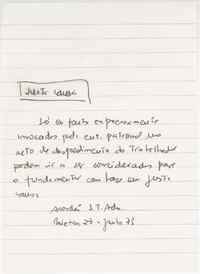 Justa causa
Só os factos expressamente
invocados pela ent. patronal no
acto de despedimento do trabalhador
podem vir a ser considerados para
o fundamentar com base em justa
causa
Acordão S.T.